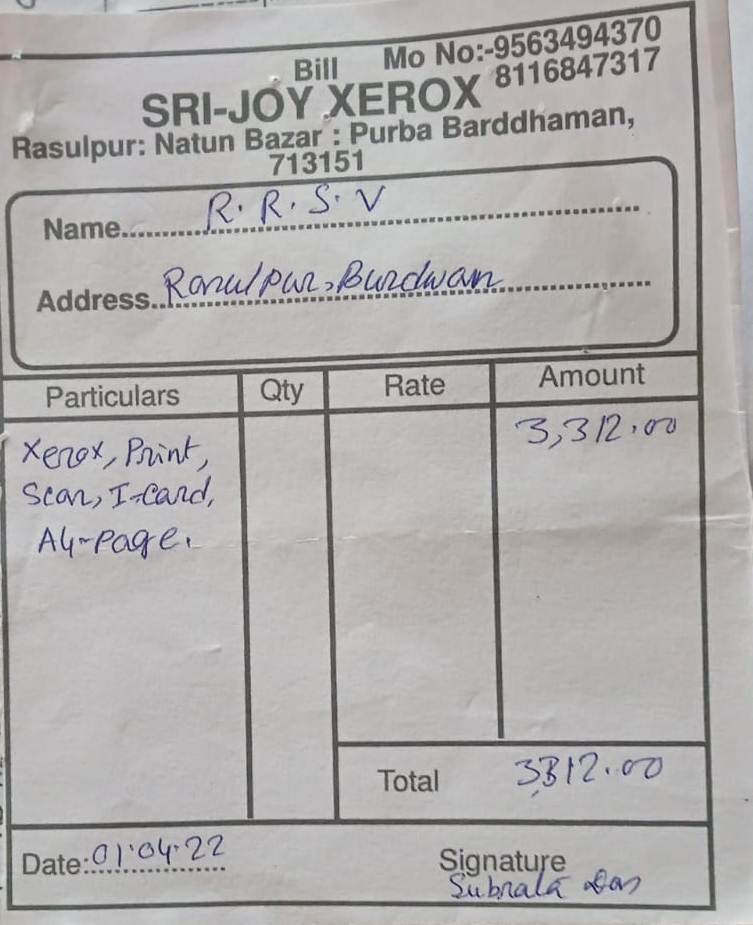 Bill Mo No:-9563494370
8116847317
SRI-JOY XEROX
Rasulpur: Natun Bazar : Purba Barddhaman,
713151
Name R. R. S. V
Address Rasulpur, Burdwan
Particulars Qty Rate Amount
Xerox, Print, 3,312.00
Scan, I-Card,
A4-Page.
Total 3312.00
Date: 01.04.22
Signature
Subrata Das